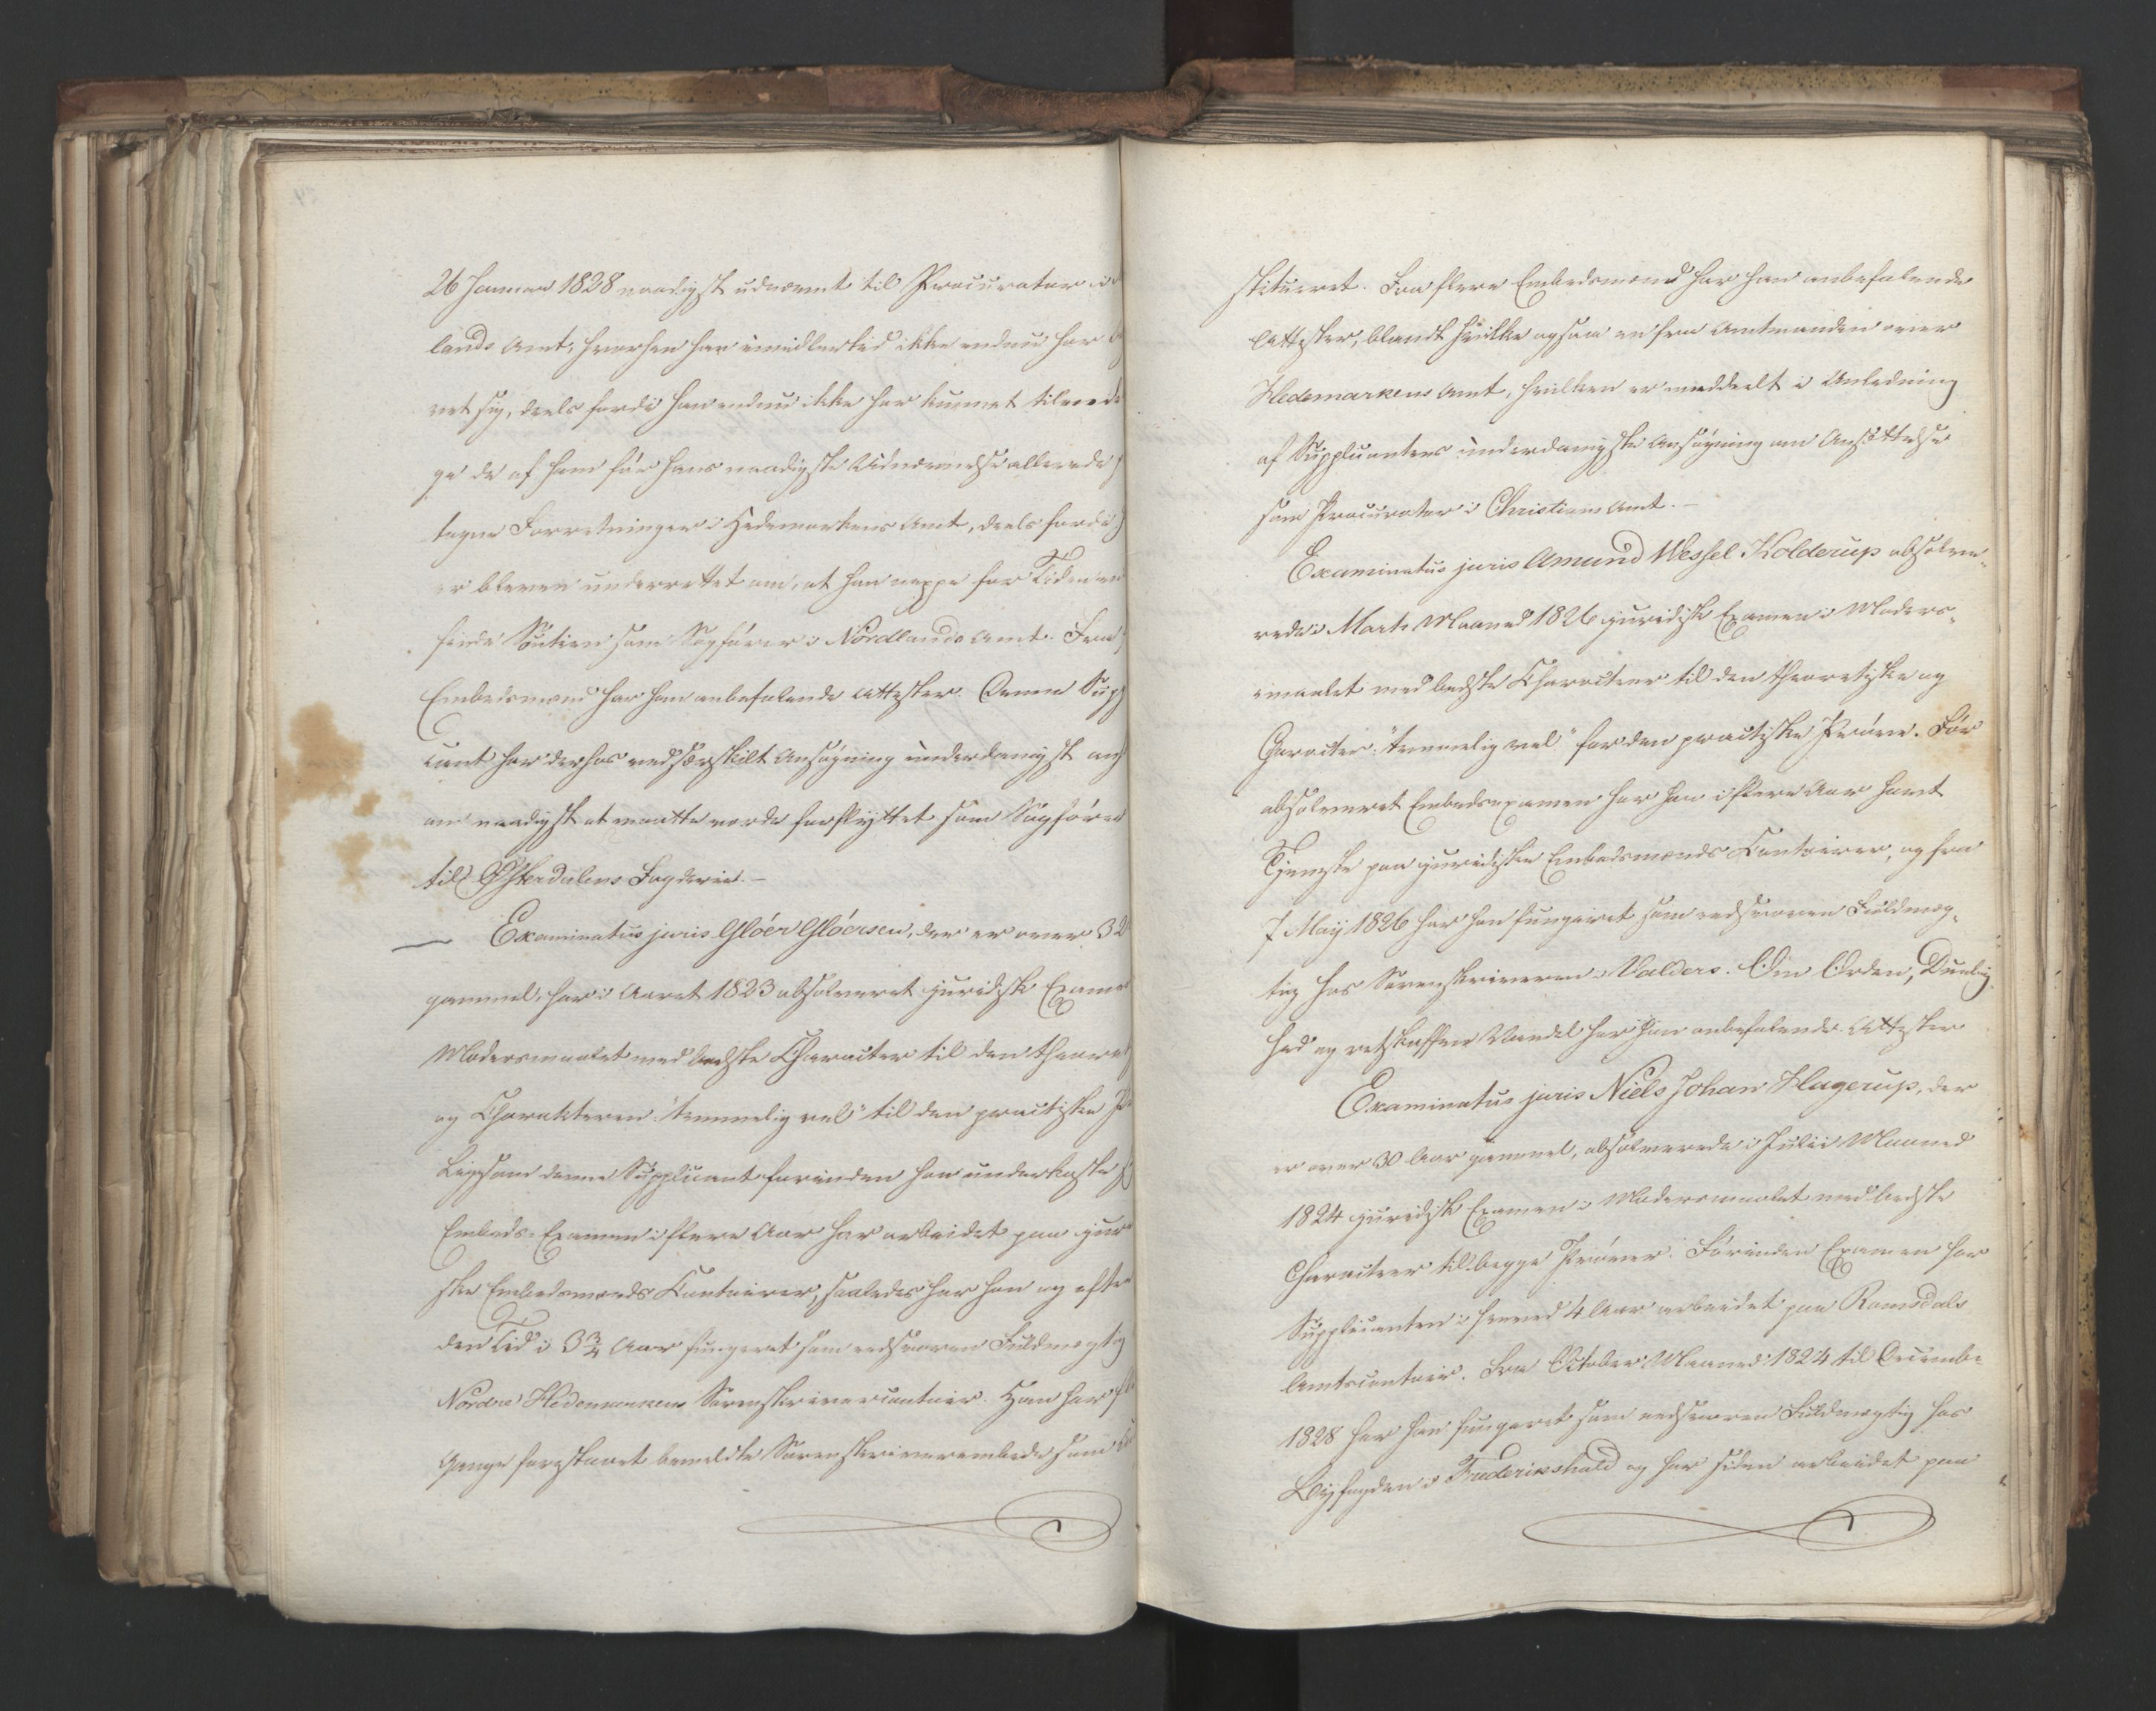 26 Januar 1828 naadigst udnævnt til Procurator i
lands Amt, hvorhen han imidlertid ikke endnu har
vet sig, deels fordi han endnu ikke har kunnet tilende
ge de af ham før hans naadigste Udnævnelse allerede
tagne Forretninger i Hedemarkens Amt, deels fordi
er bleven underrettet om, at han neppe for Tiden
finde Soutien som Sagfører i Nordlands Amt. Fra
Embedsmænd har han anbefalende Attester. Denne Supp
cant har derhos ved særskilt Ansøgning underdanigst
om naadigst at maatte vorde forflyttet som Sagfører
til Østerdalens Fogderie.-
Examinatus juris Gløer Gløersen, der er over 32
gammel, har i Aaret 1823 absolveret juridisk Examen
Modersmaalet med bedste Character til den theoret
og Charakteren: "temmelig vel" til den practiske
Ligesom denne Supplicant forinden han underkastede
Embeds-Examen i flere Aar har arbeidet paa juri
ske Embedsmænds Contoirer, saaledes har han og efter
den Tid i 3¾ Aar fungeret som edsvoren Fuldmægtig
Nordre Hedemarkens Sorenskrivercontoir. Han har
Gange forestaaet bemeldte Sorenskriverembede som
stitueret. Fra flere Embedsmænd har han anbefalende
Attester, blandt hvilke ogsaa en fra Amtmanden over
Hedemarkens Amt, hvilken er meddeelt i Anledning
af Supplicantens underdanigste Ansøgning om Ansættelse
som Procurator i Christians Amt.-
Examinatus juris Amund Wessel Kolderup absolve-
rede i Marts Maaned 1826 juridisk Examen i Moders-
maalet med bedste Character til den theoretiske og
Caracter: "temmelig vel" for den practiske Prøve. Før
absolveret Embedsexamen har han i flere Aar havt
Tjeneste paa juridiske Embedsmænds Contoirer, og fra
7 Maij 1826 har han fungeret som edsvoren Fuldmæg-
tig hos Sorenskriveren i Valders. Om Orden, Duelig-
hed og retskaffen Vandel har han anbefalende Attester
Examinatus juris Niels Johan Hagerup, der
er over 30 Aar gammel, absolverede i Julii Maaned
1824 juridisk Examen i Modersmaalet med bedste
Characterer til begge Prøver. Førinden Examen har
Supplicanten i henved 4 Aar arbeidet paa Romsdals
Amtscontoir. Fra October Maaned 1824 til Decembr
1828 har han fungeret som edsvoren Fuldmægtig hos
Byfogden i Frederikshald og har siden arbeidet paa